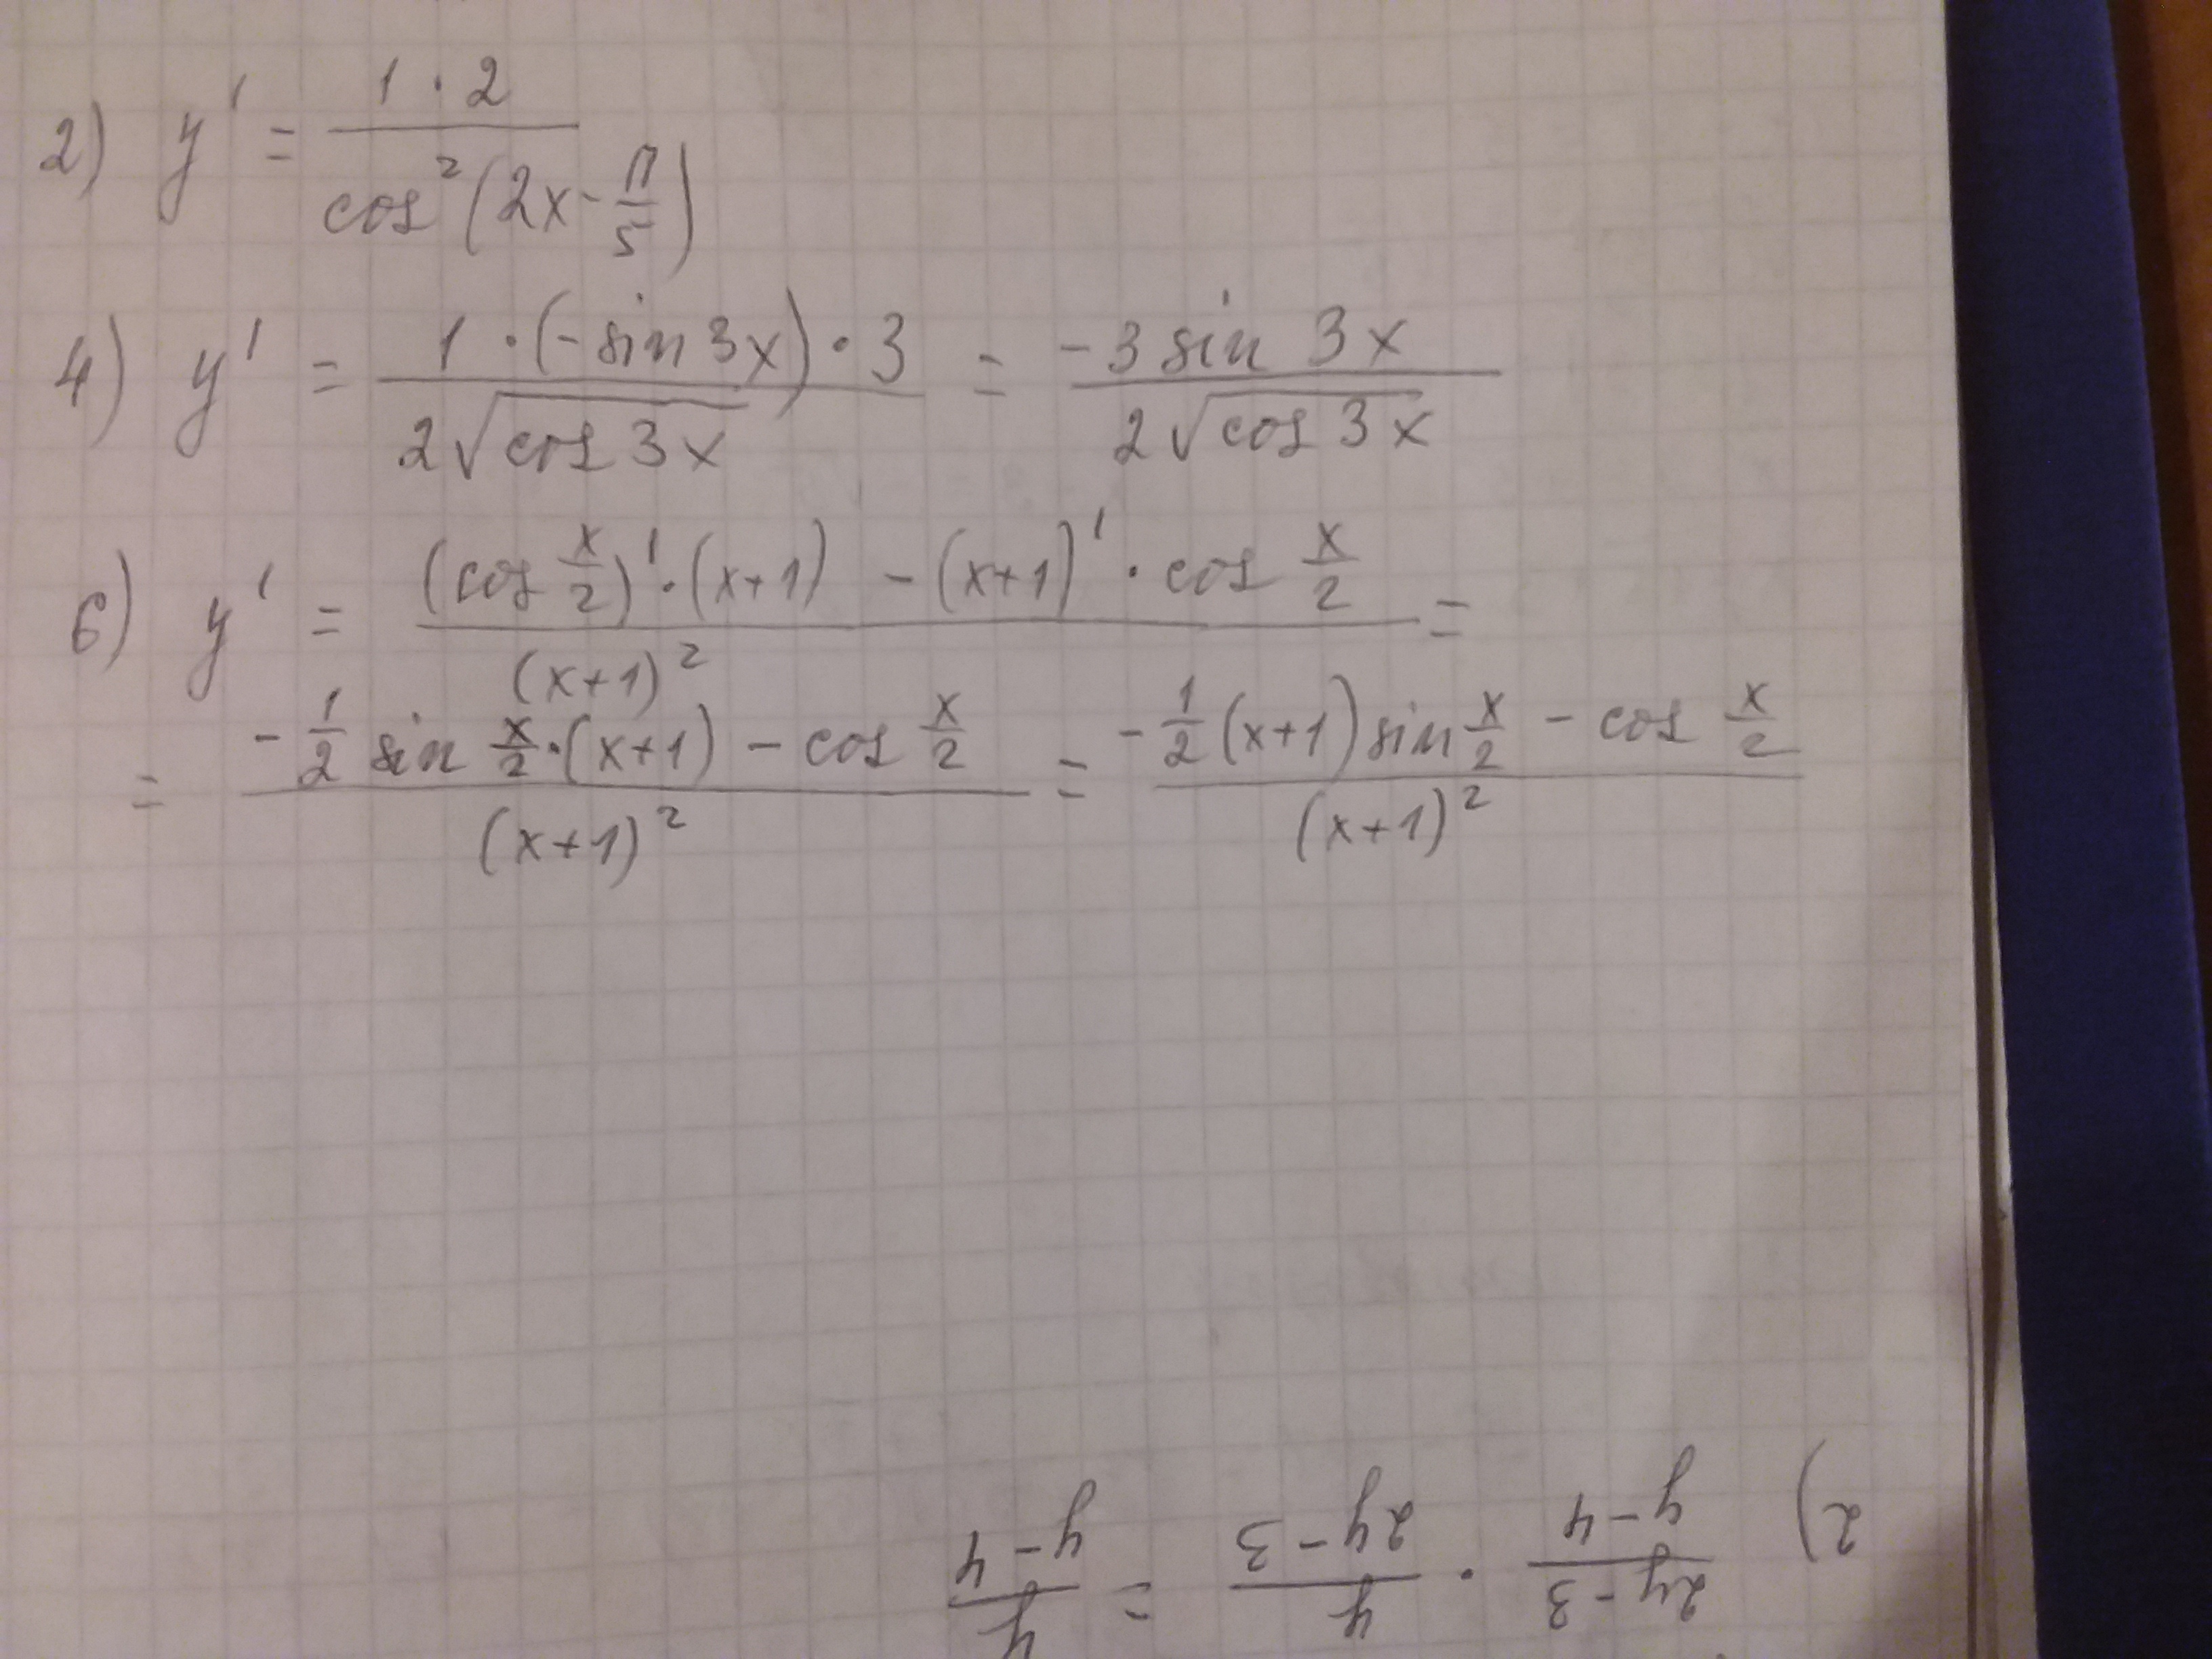 2) y' = 1 · 2 / cos²(2x - π/5)
4) y' = 1 · (-sin 3x) · 3 / 2√cos 3x = -3 sin 3x / 2√cos 3x
6) y' = (cos x/2)' · (x+1) - (x+1)' · cos x/2 / (x+1)² =
= -1/2 sin x/2 · (x+1) - cos x/2 / (x+1)² = -1/2 (x+1) sin x/2 - cos x/2 / (x+1)²
2) 2y-3 / y-4 · y / 2y-3 = y / y-4